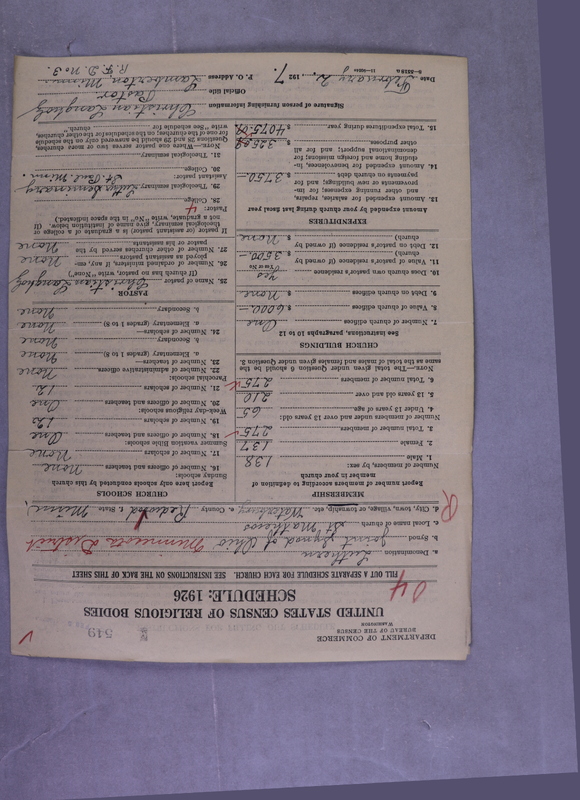 DEPARTMENT OF COMMERCE
BUREAU OF THE CENSUS
WASHINGTON
549
UNITED STATES CENSUS OF RELIGIOUS BODIES
SCHEDULE: 1926
04
FILL OUT A SEPARATE SCHEDULE FOR EACH CHURCH. SEE INSTRUCTIONS ON THE BACK OF THIS SHEET
a. Denomination Lutheran
b. Synod Joint Synod of Ohio Minnesota District
c. Local name of church St Matheus
d. City, town, village, or township, etc. Waterbury e. County Redwood f. State Minn
MEMBERSHIP
Report number of members according to definition of
member in your church
Number of members, by sex:
1. Male 138
2. Female 137
3. Total number of members 275
Number of members under and over 13 years old:
4. Under 13 years of age 65
5. 13 years old and over 210
6. Total number of members 275
NOTE.—The total given under Question 6 should be the
same as the total of males and females given under Question 3.
CHURCH BUILDINGS
See instructions, paragraphs 10 to 12
7. Number of church edifices One
8. Value of church edifices $ 6000.—
9. Debt on church edifices $ None
10. Does church own pastor's residence yes
(Yes or No)
11. Value of pastor's residence (if owned by
church) $ 3500.—
12. Debt on pastor's residence (if owned by
church) $ None
EXPENDITURES
Amount expended by your church during last fiscal year
13. Amount expended for salaries, repairs,
and other running expenses; for im-
provements or new building; and for
payments on church debt $ 3750.—
14. Amount expended for benevolences, in-
cluding home and foreign missions; for
denominational support; and for all
other purposes $
15. Total expenditures during year $
CHURCH SCHOOLS
Report here only schools conducted by this church
Sunday schools:
16. Number of officers and teachers None
17. Number of scholars None
Summer vacation Bible schools:
18. Number of officers and teachers One
19. Number of scholars 12
Week-day religious schools:
20. Number of officers and teachers One
21. Number of scholars 12
Parochial schools:
22. Number of administrative officers None
23. Number of teachers—
a. Elementary (grades 1 to 8) None
b. Secondary None
24. Number of scholars—
a. Elementary (grades 1 to 8) None
b. Secondary None
PASTOR
25. Name of pastor Christian Langholz
(If church has no pastor, write "None")
26. Number of ordained ministers, if any, em-
ployed as assistant pastors None
27. Number of other churches served by the
pastor or his assistants None
If pastor (or assistant pastor) is a graduate of college or
theological seminary, give name of institution below. (If
not a graduate, write "No" in the space indicated.)
Pastor: 4
28. College
29. Theological seminary Luth. Seminary
St Paul Minn.
Assistant pastor:
30. College
31. Theological seminary
NOTE.—Where one pastor serves two or more churches,
Questions 25 and 28 should be answered only on the schedule
for one of the churches; on the schedules for the other churches,
write "See schedule for church."
Signature of person furnishing information Christian Langholz
Official title Pastor
Date February 2, 1927. P. O. Address Lamberton Minn
R.F.D. No 3.